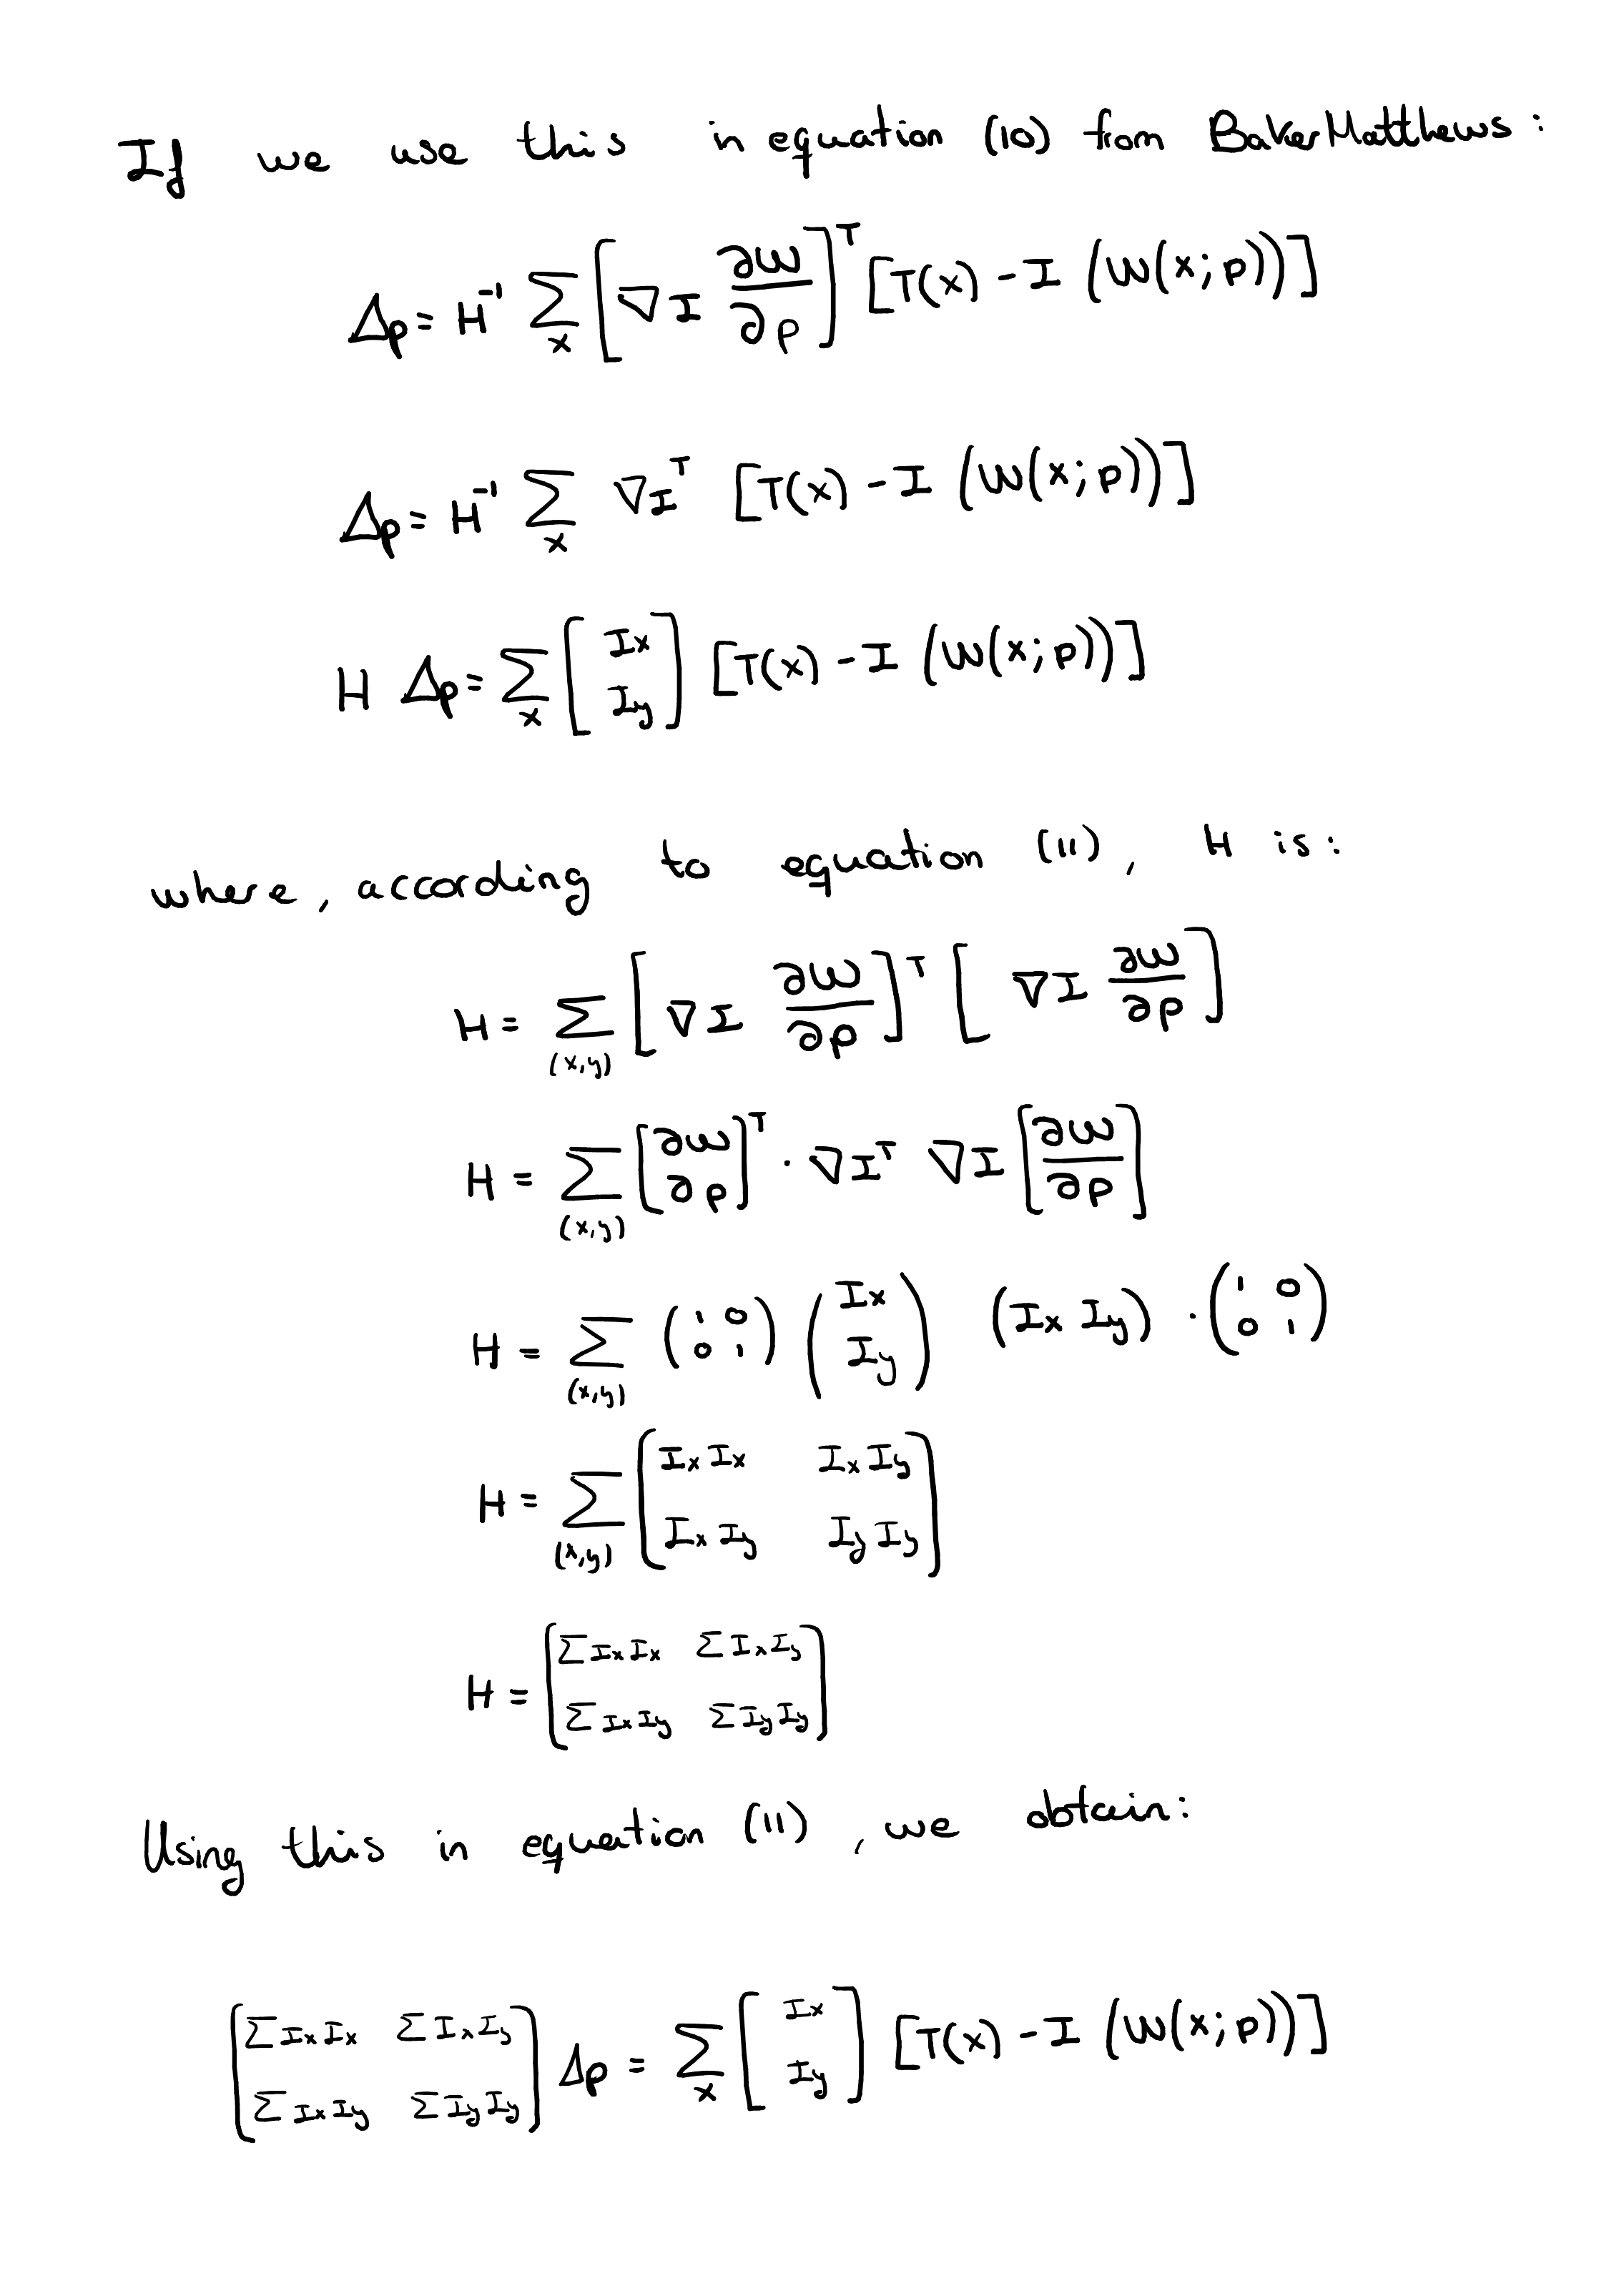 If we use this in equation (10) from BakerMatthews:
Δp = H⁻¹ ∑_x [∇I ∂W/∂p]ᵀ [T(x) - I (W(x;p))]
Δp = H⁻¹ ∑_x ∇Iᵀ [T(x) - I (W(x;p))]
H Δp = ∑_x [Ix ; Iy] [T(x) - I (W(x;p))]
where, according to equation (11), H is:
H = ∑_(x,y) [∇I ∂W/∂p]ᵀ [∇I ∂W/∂p]
H = ∑_(x,y) [∂W ∂p]ᵀ · ∇Iᵀ ∇I [∂W/∂p]
H = ∑_(x,y) (1 0 ; 0 1) (Ix ; Iy) (Ix Iy) · (1 0 ; 0 1)
H = ∑_(x,y) [IxIx IxIy ; IxIy IyIy]
H = [∑IxIx ∑IxIy ; ∑IxIy ∑IyIy]
Using this in equation (11), we obtain:
[∑IxIx ∑IxIy ; ∑IxIy ∑IyIy] Δp = ∑_x [Ix ; Iy] [T(x) - I (W(x;p))]